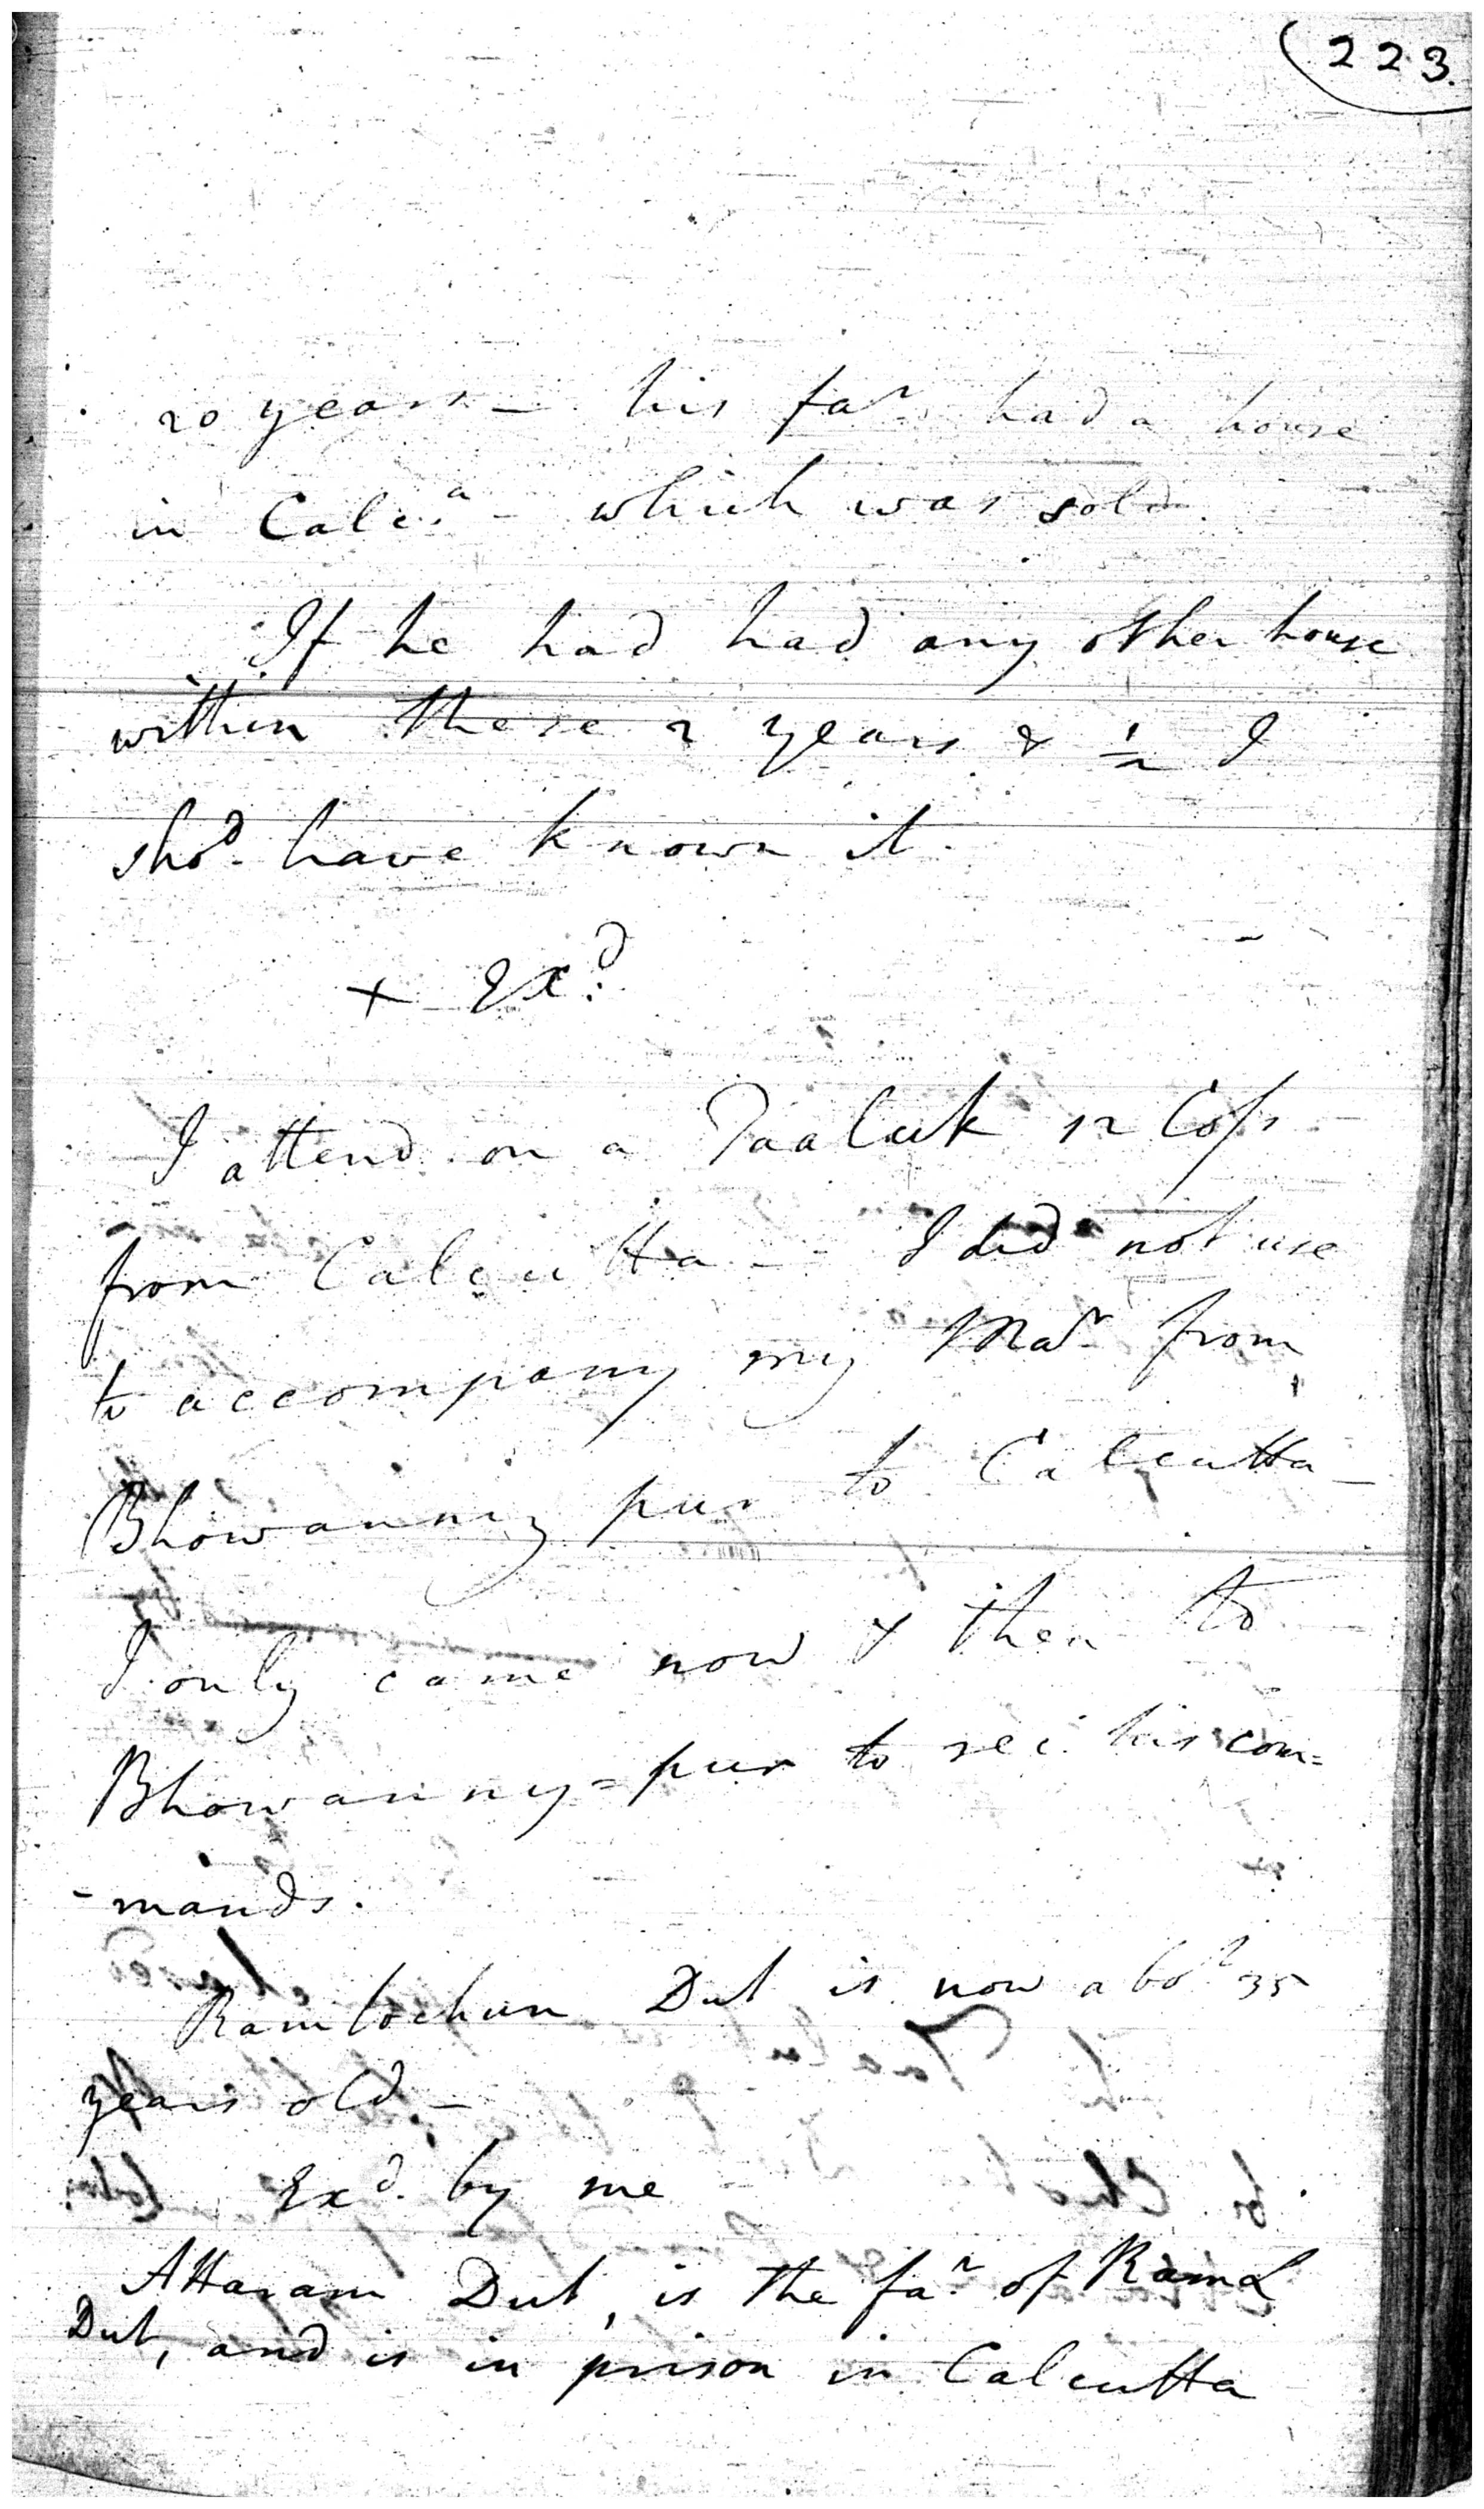 223.
20 years - his far. had a house
in Calca - which was sold.
If he had had any other house
within these 2 years & 1/2 I
shod. have known it.
+ Exd.
I attend on a Taaluk 12 Coss
from Calcutta - I did not use
to accompany my Mar. from
Bhowanny pur to Calcutta -
I only came now & then to
Bhowanny=pur to rec: his com=
-mands.
Ramlochun Dut is now abot. 35
years old -
Exd. by me
Attaram Dut, is the far. of Ram L
Dut, and is in prison in Calcutta